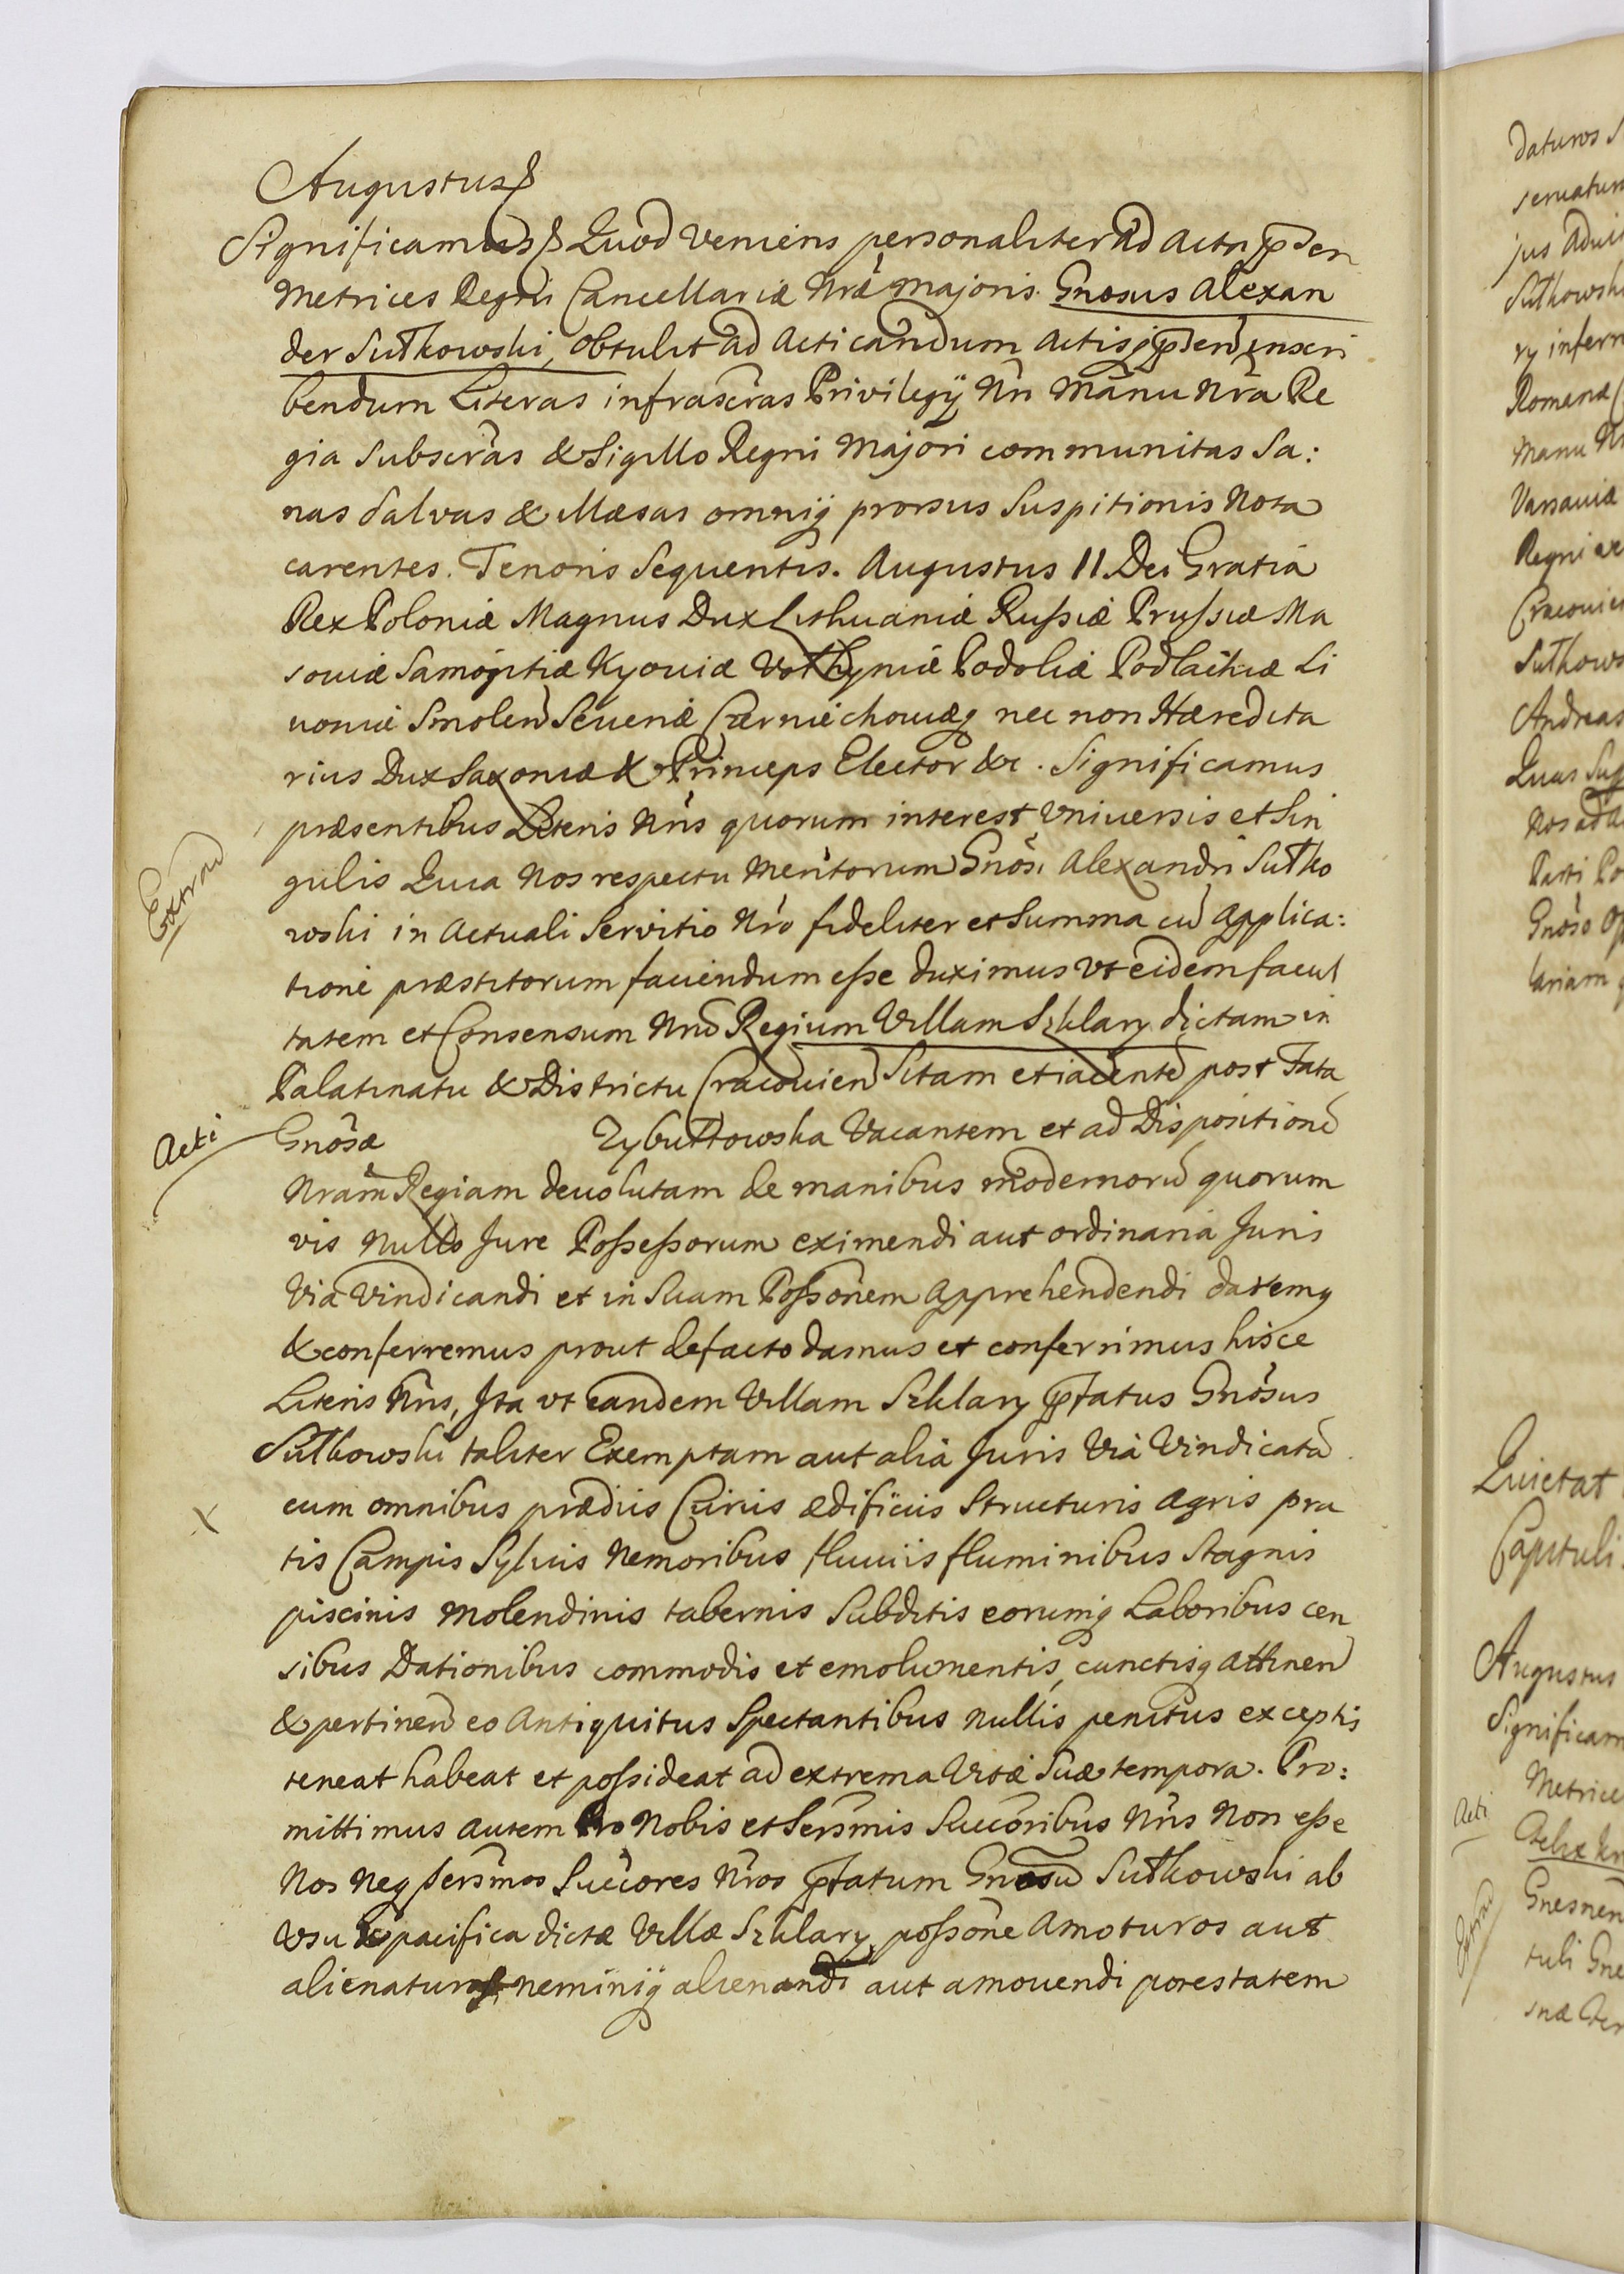 Augustus
Significamus Quod veniens personaliter ad Acta p̄den
Metrices Regni Cancellariæ Nræ majoris Gnosus Alexan
der Sułkowski, obtulit ad Acticandum Actisq p̄den inscri
bendum Literas infrascras Privilegÿ Nri Manu Nra Re
gia Subscras & Sigillo Regni Majori communitas Sa:
nas Salvas & illæsas omniq prorsus Suspitionis Nota
carentes. Tenoris Sequentis. Augustus II Dei Gratia
Rex Poloniæ Magnus Dux Lithuaniæ Russiæ Prussiæ Ma
souiæ Samogitiæ Kyouiæ Volhyniæ Podoliæ Podlachiæ Li
uoniæ Smolen Seueriæ Czerniechouiæq nec non Hæredita
rius Dux Saxoniæ & Princeps Elector &c. Significamus
præsentibus Literis Nris quorum interest Vniuersis et Sin
gulis Quia Nos respectu Meritorum Gnosi Alexandri Sułko
wski in Actuali Servitio Nro fideliter et Summa cū Applica:
tione præstitorum fauiendum esse duximus vt eidem facul
tatem et Consensum Nrū Regium Villam Szklary dictam in
Palatinatu & Districtu Cracouien Sitam et iacente post Fata
Gnosæ Zybułtowska Vacantem et ad Dispositione
Nram Regiam deuolutam de manibus modernorū quorum
vis Nullo Jure Possessorum eximendi aut ordinaria Juris
Via Vindicandi et in Suam Possonem Apprehendendi daremq
& conferremus prout defacto damus et conferrimus hisce
Literis Nris, Ita vt eandem Villam Szklary p̄fatus Gnosus
Sułkowski taliter Exemptam aut alia Juris Via Vindicatā
cum omnibus prædiis Curiis ædificiis Structuris Agris pra
tis Campis Syluis Nemoribus fluuiis fluminibus Stagnis
piscinis Molendinis tabernis Subditis eorumq Laboribus cen
sibus Dationibus commodis et emolumentis, cunctisq attinen
& pertinen eo Antiquitus Spectantibus Nullis penitus exceptis
teneat habeat et possideat ad extrema Vitæ Suæ tempora. Pro:
mittimus autem Pro Nobis et Sersmis Succoribus Nris Non esse
Nos Neq Sersmos Succores Nros p̄fatum Gnosū Sułkowski ab
Vsu & pacifica dictæ Villæ Szklary possone Amoturos aut
alienaturos neminiq alienandi aut amouendi potestatem
Extrad
Acti
X
daturos
Sułkowski
Romanæ
Manu
Varsauiæ
Regni
Andreas
Quas
Quietat
Capituli
Augustus
Acti
tuli